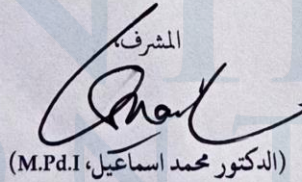 المشرف،
(الدكتور محمد اسماعيل، M.Pd.I)